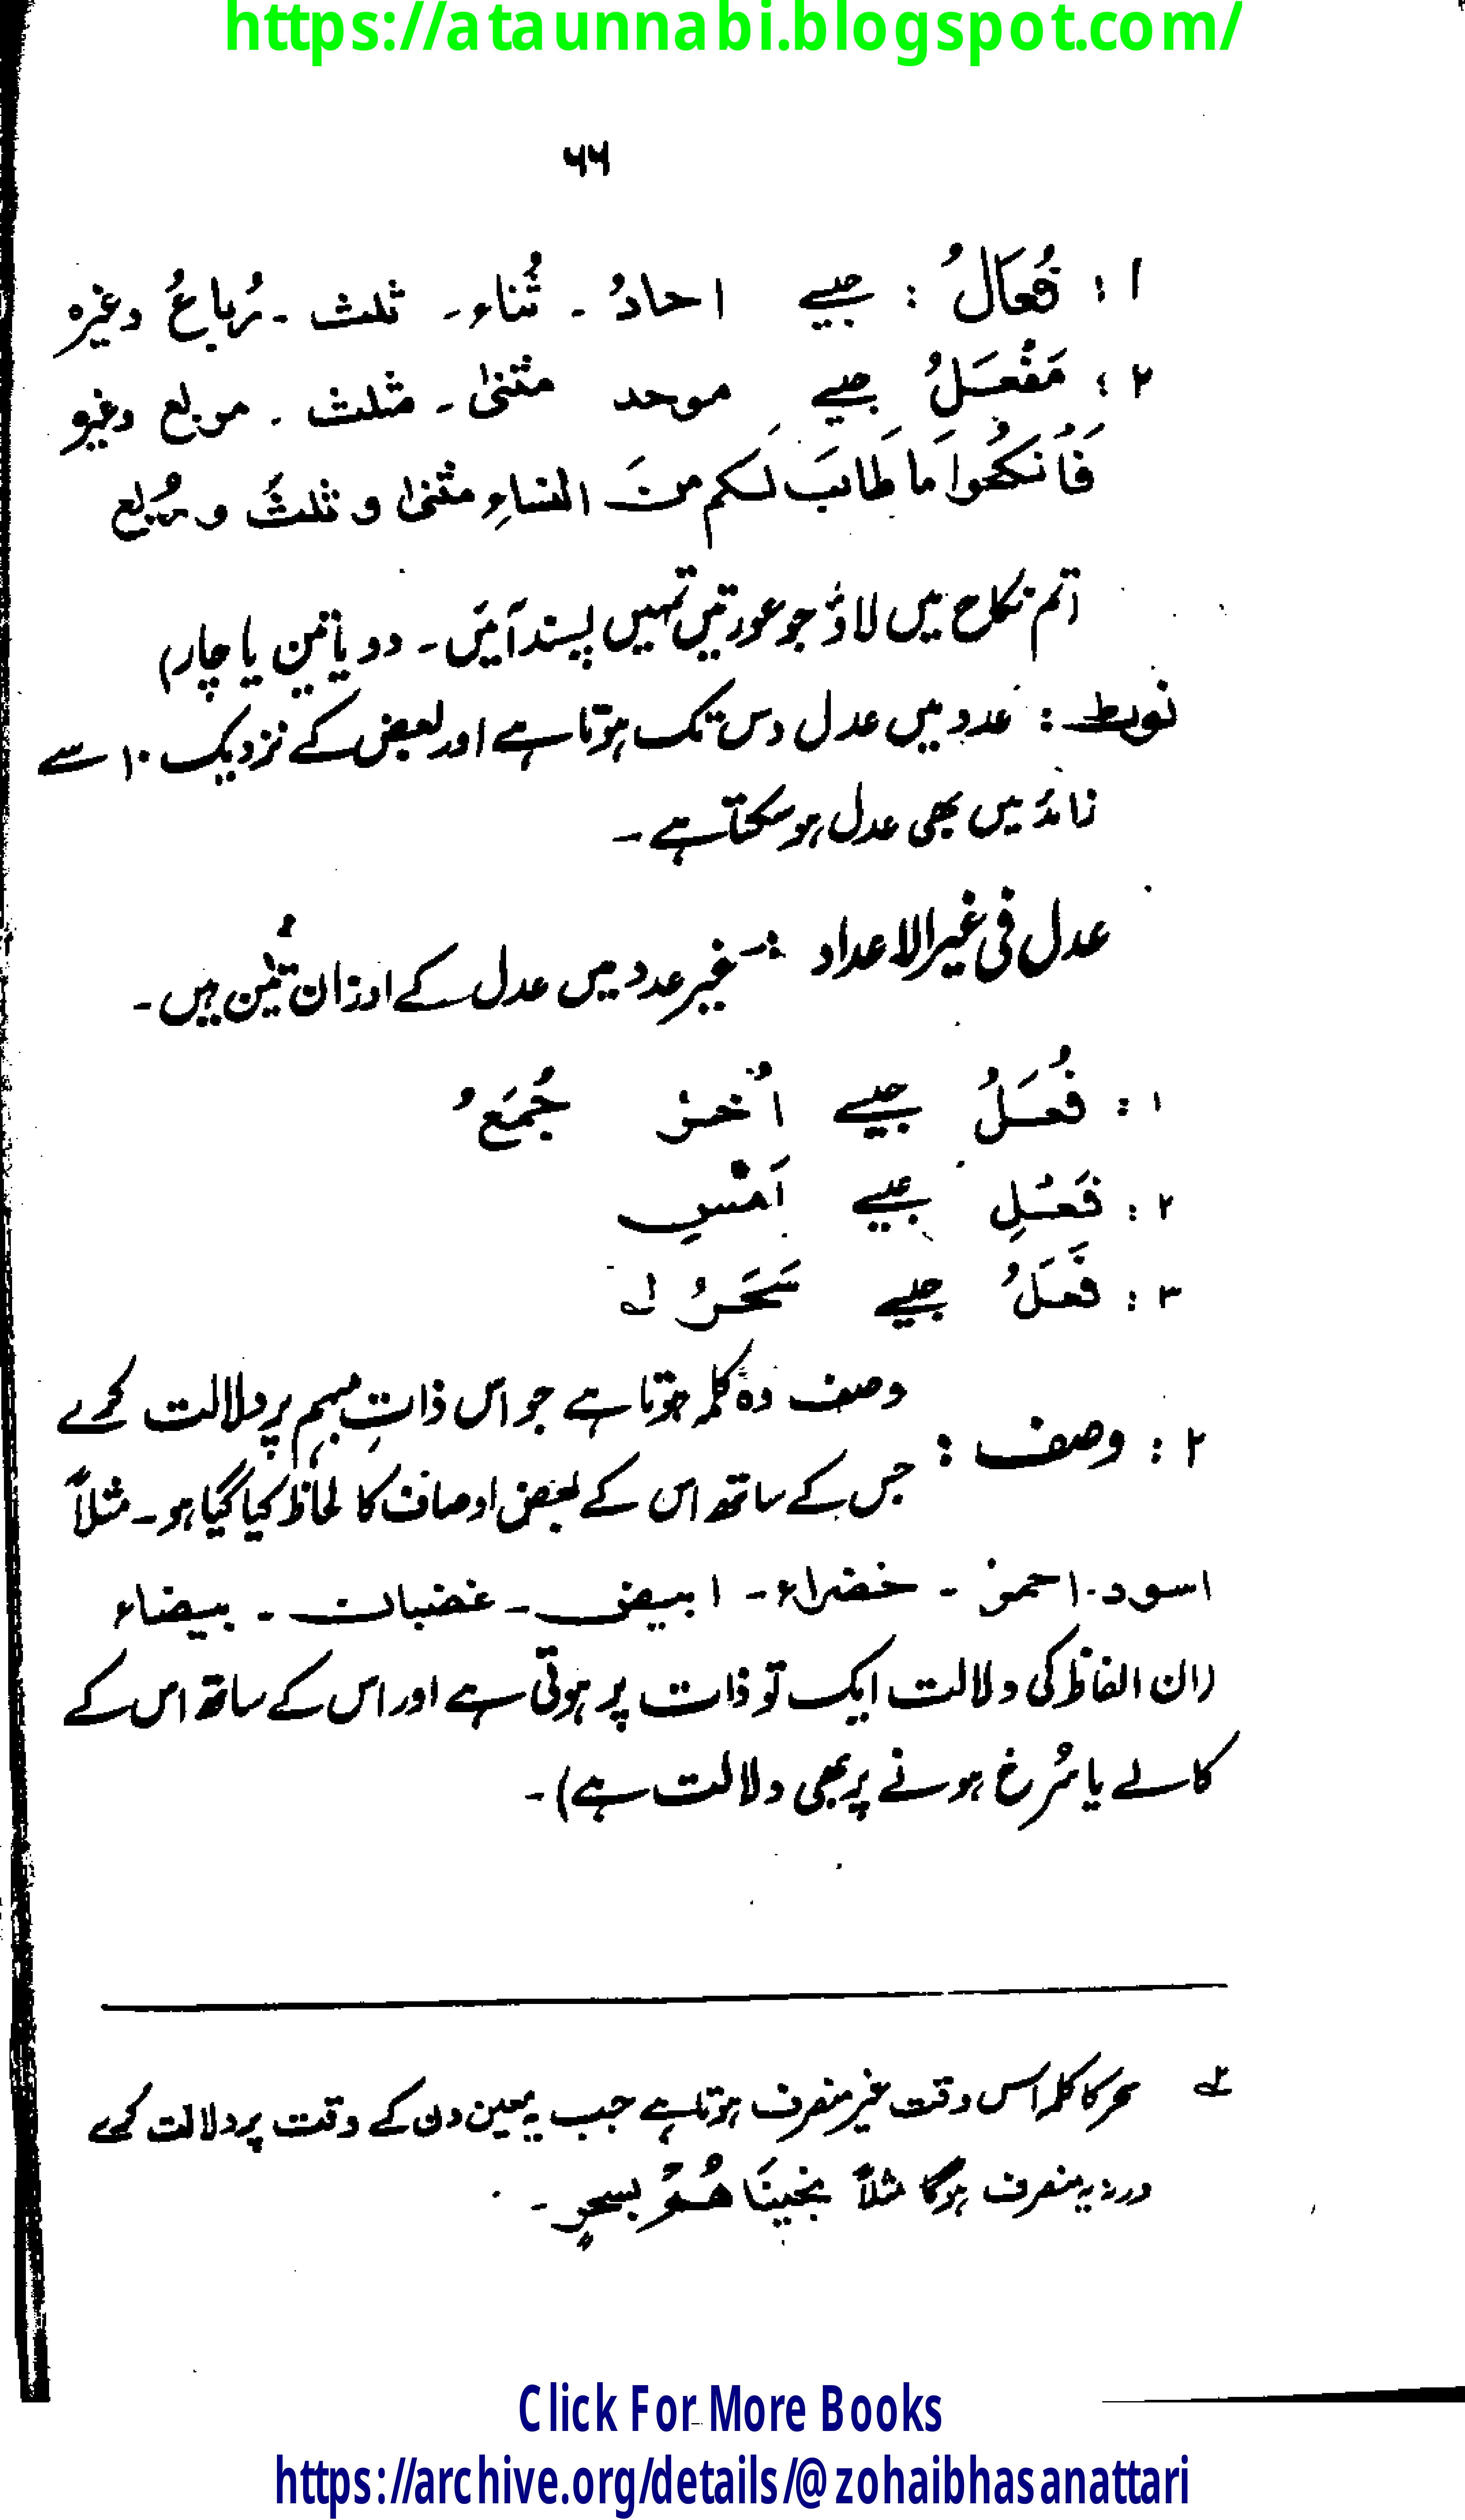 https://ataunnabi.blogspot.com/
۶۶
۱ : فُعَالُ : جیسے احادُ ۔ ثُناء ۔ ثلث ۔ رُباعُ وغیرہ
۲ : مَفْعَلُ جیسے موحد مثنیٰ ۔ مثلث ۔ مربع وغیرہ
فَاَنکحُوا مَا طَابَ لَکم منَ النساءِ مثنیٰ و ثلثَ و رُبٰع
(تم نکاح میں لاؤ جو عورتیں تمہیں پسند آئیں ۔ دو یا تین یا چار)
نوٹ : عدد میں عدل دس تک ہوتا ہے اور بعض کے نزدیک ۱۰ سے
زائد میں بھی عدل ہو سکتا ہے ۔
عدل فی غیر الاعداد : غیر عدد میں عدل کے اوزان تین ہیں ۔
۱ : فُعَلُ جیسے اُخَرُ جُمَعُ
۲ : فَعْلِ جیسے اَمْسِ
۳ : فَعَلُ جیسے سَحَرُ لے
۲ : وصف : وصف وہ کلمہ ہوتا ہے جو اس ذاتِ مبہم پر دلالت کرے
جس کے ساتھ اس کے بعض اوصاف کا لحاظ کیا گیا ہو ۔ مثلاً
اسود ۔ احمر ۔ خضراء ۔ ابیض ۔ غضبان ۔ بیضاء
(ان الفاظ کی دلالت ایک تو ذات پر ہوتی ہے اور اس کے ساتھ اس کے
کالے یا سُرخ ہونے پر بھی دلالت ہے) ۔
لے سحر کا کلمہ اس وقت غیر منصرف ہوتا ہے جب یہ معین دن کے وقت پر دلالت کرے
ورنہ یہ منصرف ہوگا مثلاً نجینَا هُمْ بسحرٍ ۔
Click For More Books
https://archive.org/details/@zohaibhasanattari